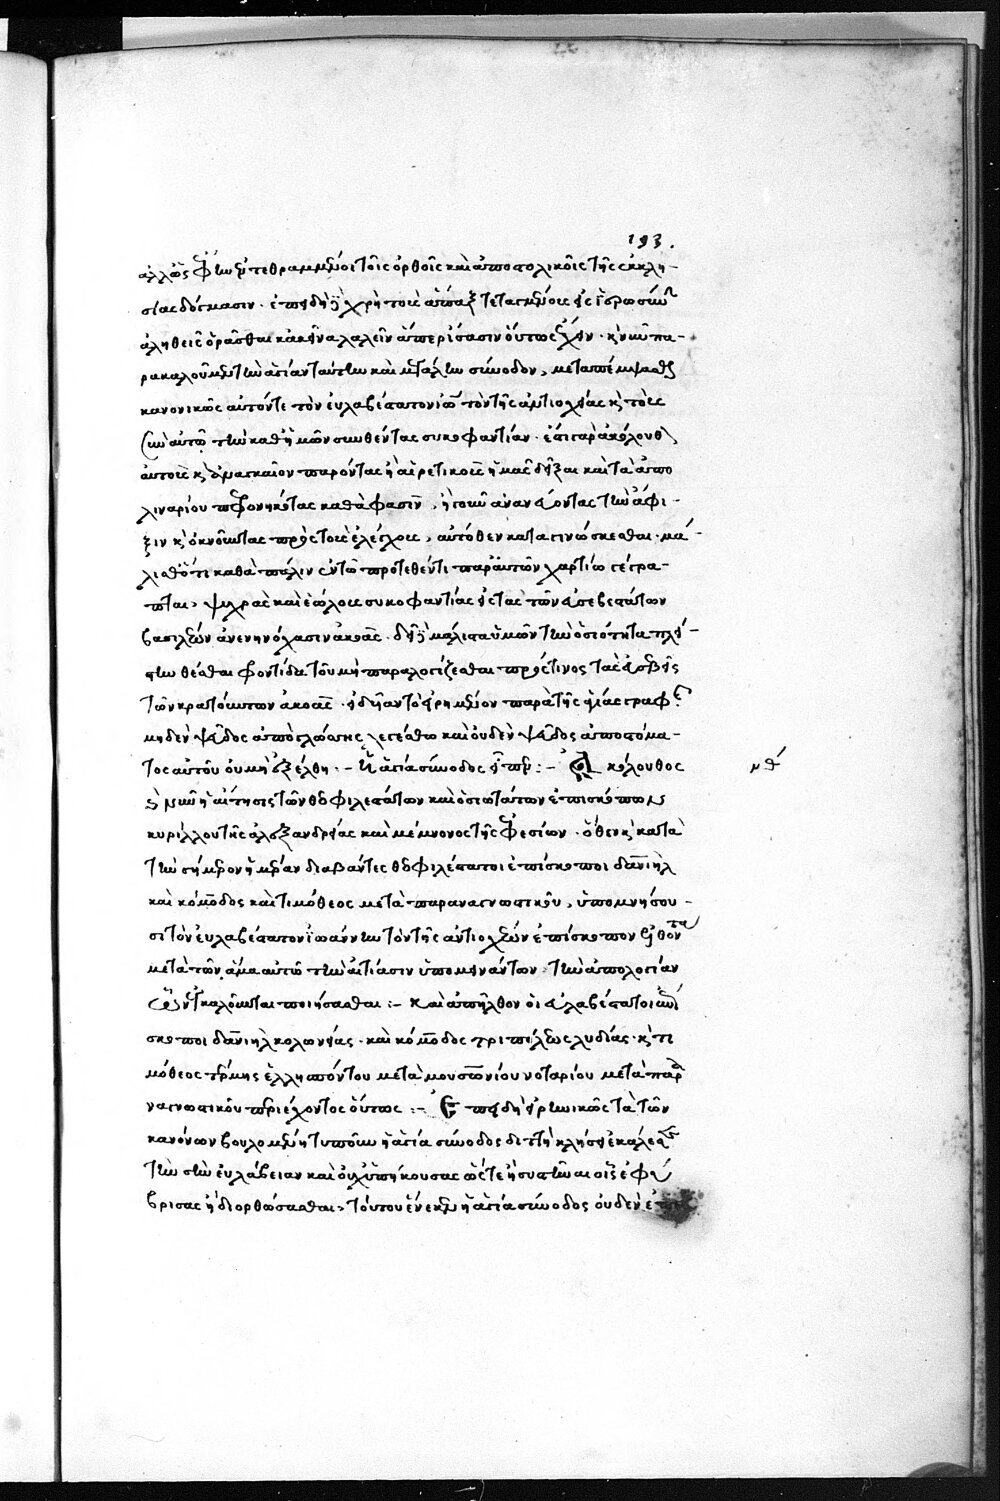 193.
ἀλλ' ὡς ἦμεν ἐντεθραμμένοι τοῖς ὀρθοῖς καὶ ἀποστολικοῖς τῆς ἐκκλη-
σίας δόγμασιν · ἐπειδὴ δὲ χρὴ τοὺς ἅπαξ τεταγμένους εἰς ἱερωσύν
ἀληθεῖς ὁρᾶσθαι κἀκεῖνα λαλεῖν ἅπερ ἴσασιν οὕτως ἔχειν · καὶ νῦν πα-
ρακαλοῦμεν τὴν ἁγίαν ταύτην καὶ μεγάλην σύνοδον, μεταπέμψασθαι
κανονικῶς αὐτόν τε τὸν εὐλαβέστατον ἰω τὸν τῆς ἀντιοχείας καὶ τοὺς
σὺν αὐτῷ τὴν καθ' ἡμῶν συνθέντας συκοφαντίαν · ἔστι γὰρ ἀκόλουθ
αὐτοῖς καὶ ἀναγκαῖον παρόντας ἢ αἱρετικοὺς ἡμᾶς δεῖξαι καὶ τὰ ἀπο
λιναρίου πεφρονηκότας καθά φασιν, ἤγουν ἀνανεύοντας τὴν ἄφι-
ξιν καὶ ὀκνοῦντας πρὸς τοὺς ἐλέγχους, αὐτόθεν καταγινώσκεσθαι · μά-
λισθ' ὅτι καθὰ πάλιν ἐν τῷ προτεθέντι παρ' αὐτῶν χαρτίῳ γέγρα-
πται, ψυχρὰς καὶ ἑώλους συκοφαντίας εἰς τὰς τῶν εὐσεβεστάτων
βασιλέων ἀνενηνόχασιν ἀκοάς · δεῖ δὲ μάλιστα ὑμῶν τὴν ὁσιότητα πλεί-
στην θέσθαι φροντίδα τοῦ μὴ παραλογίζεσθαι πρός τινος τὰς εὐσεβεῖς
τῶν κρατούντων ἀκοάς · εἰ δῆλον τὸ εἰρημένον παρὰ τῆς θείας γραφῆς
μηδὲν ψεῦδος ἀπὸ γλώσσης λεγέσθω καὶ οὐδὲν ψεῦδος ἀπὸ στόμα-
τος αὐτοῦ οὐ μὴ ἐξέλθῃ · – Ἡ ἁγία σύνοδος εἶπεν : – Ἀκόλουθος
νθ
ἦν ἡ αἴτησις τῶν θεοφιλεστάτων καὶ ὁσιωτάτων ἐπισκόπων
κυρίλλου τῆς ἀλεξανδρείας καὶ μέμνονος τῆς ἐφεσίων · ὅθεν καὶ κατὰ
τὴν σήμερον ἡμέραν διαβάντες θεοφιλέστατοι ἐπίσκοποι δανιὴλ
καὶ κόμοδος καὶ τιμόθεος μετὰ παραναγνωστικοῦ, ὑπομνήσου-
σι τὸν εὐλαβέστατον ἰωάννην τὸν τῆς ἀντιοχέων ἐπίσκοπον ἐλθόντα
μετὰ τῶν ἅμα αὐτῷ τὴν αἰτίασιν ὑπομεινάντων · τὴν ἀπολογίαν
ὧν ἐγκαλοῦνται ποιήσασθαι : – Καὶ ἀπῆλθον οἱ εὐλαβέστατοι ἐπί
σκοποι δανιὴλ κολωνείας · καὶ κόμοδος τριπόλεως λυδίας · καὶ τι
μόθεος τέρμης ἑλλησπόντου μετὰ μουσωνίου νοταρίου μετὰ παρα
ναγνωστικοῦ περιέχοντος οὕτως : – Ἐπειδὴ εἰρηνικῶς τὰ τῶν
κανόνων βουλομένη τυποῦν ἡ ἁγία σύνοδος δι' τὴν κλῆσιν ἐκάλεσε
τὴν σὴν εὐλάβειαν καὶ οὐχ ὑπήκουσας ὥστε ἢ συστῆναι οἷς ἐφ
ύβρισας ἢ διορθώσασθαι, τούτου ἕνεκεν ἡ ἁγία σύνοδος οὐδὲν